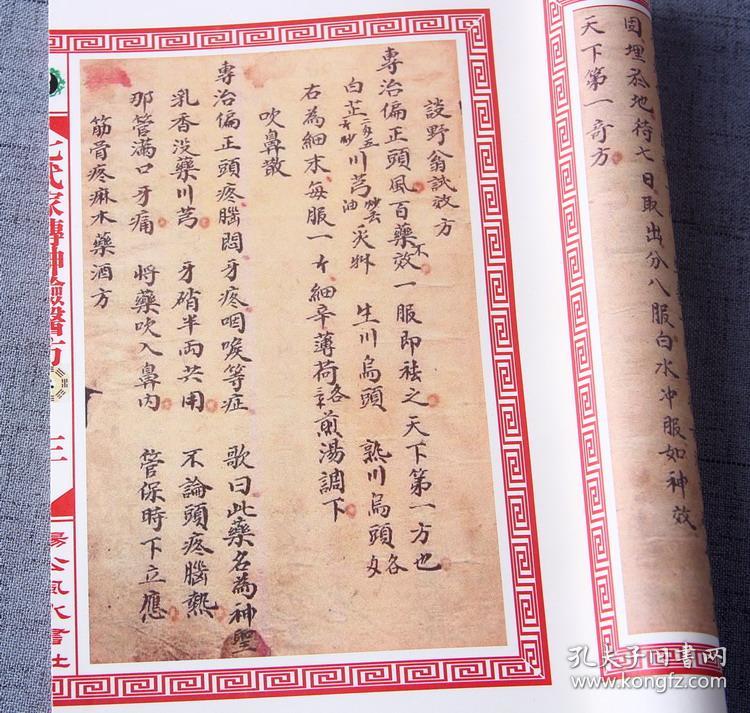 固埋於地待七日取出分八服白水冲服如神效
天下第一奇方
設野翁試效方
專治偏正頭風百藥不效一服即祛之天下第一方也
白芷二分五 川芎 炙草 生川烏頭 熟川烏頭各
右為細末每服一 細辛薄荷各 煎湯調下
吹鼻散
專治偏正頭疼腦悶牙疼咽喉等症 歌曰此藥名為神聖
乳香没藥川芎 牙硝半兩共用 不論頭疼腦熱
那管滿口牙痛 將藥吹入鼻内 管保時下立應
筋骨疼痲木藥酒方
家傳神驗醫方
三
楊公風水書社
孔夫子旧书网
www.kongfz.com